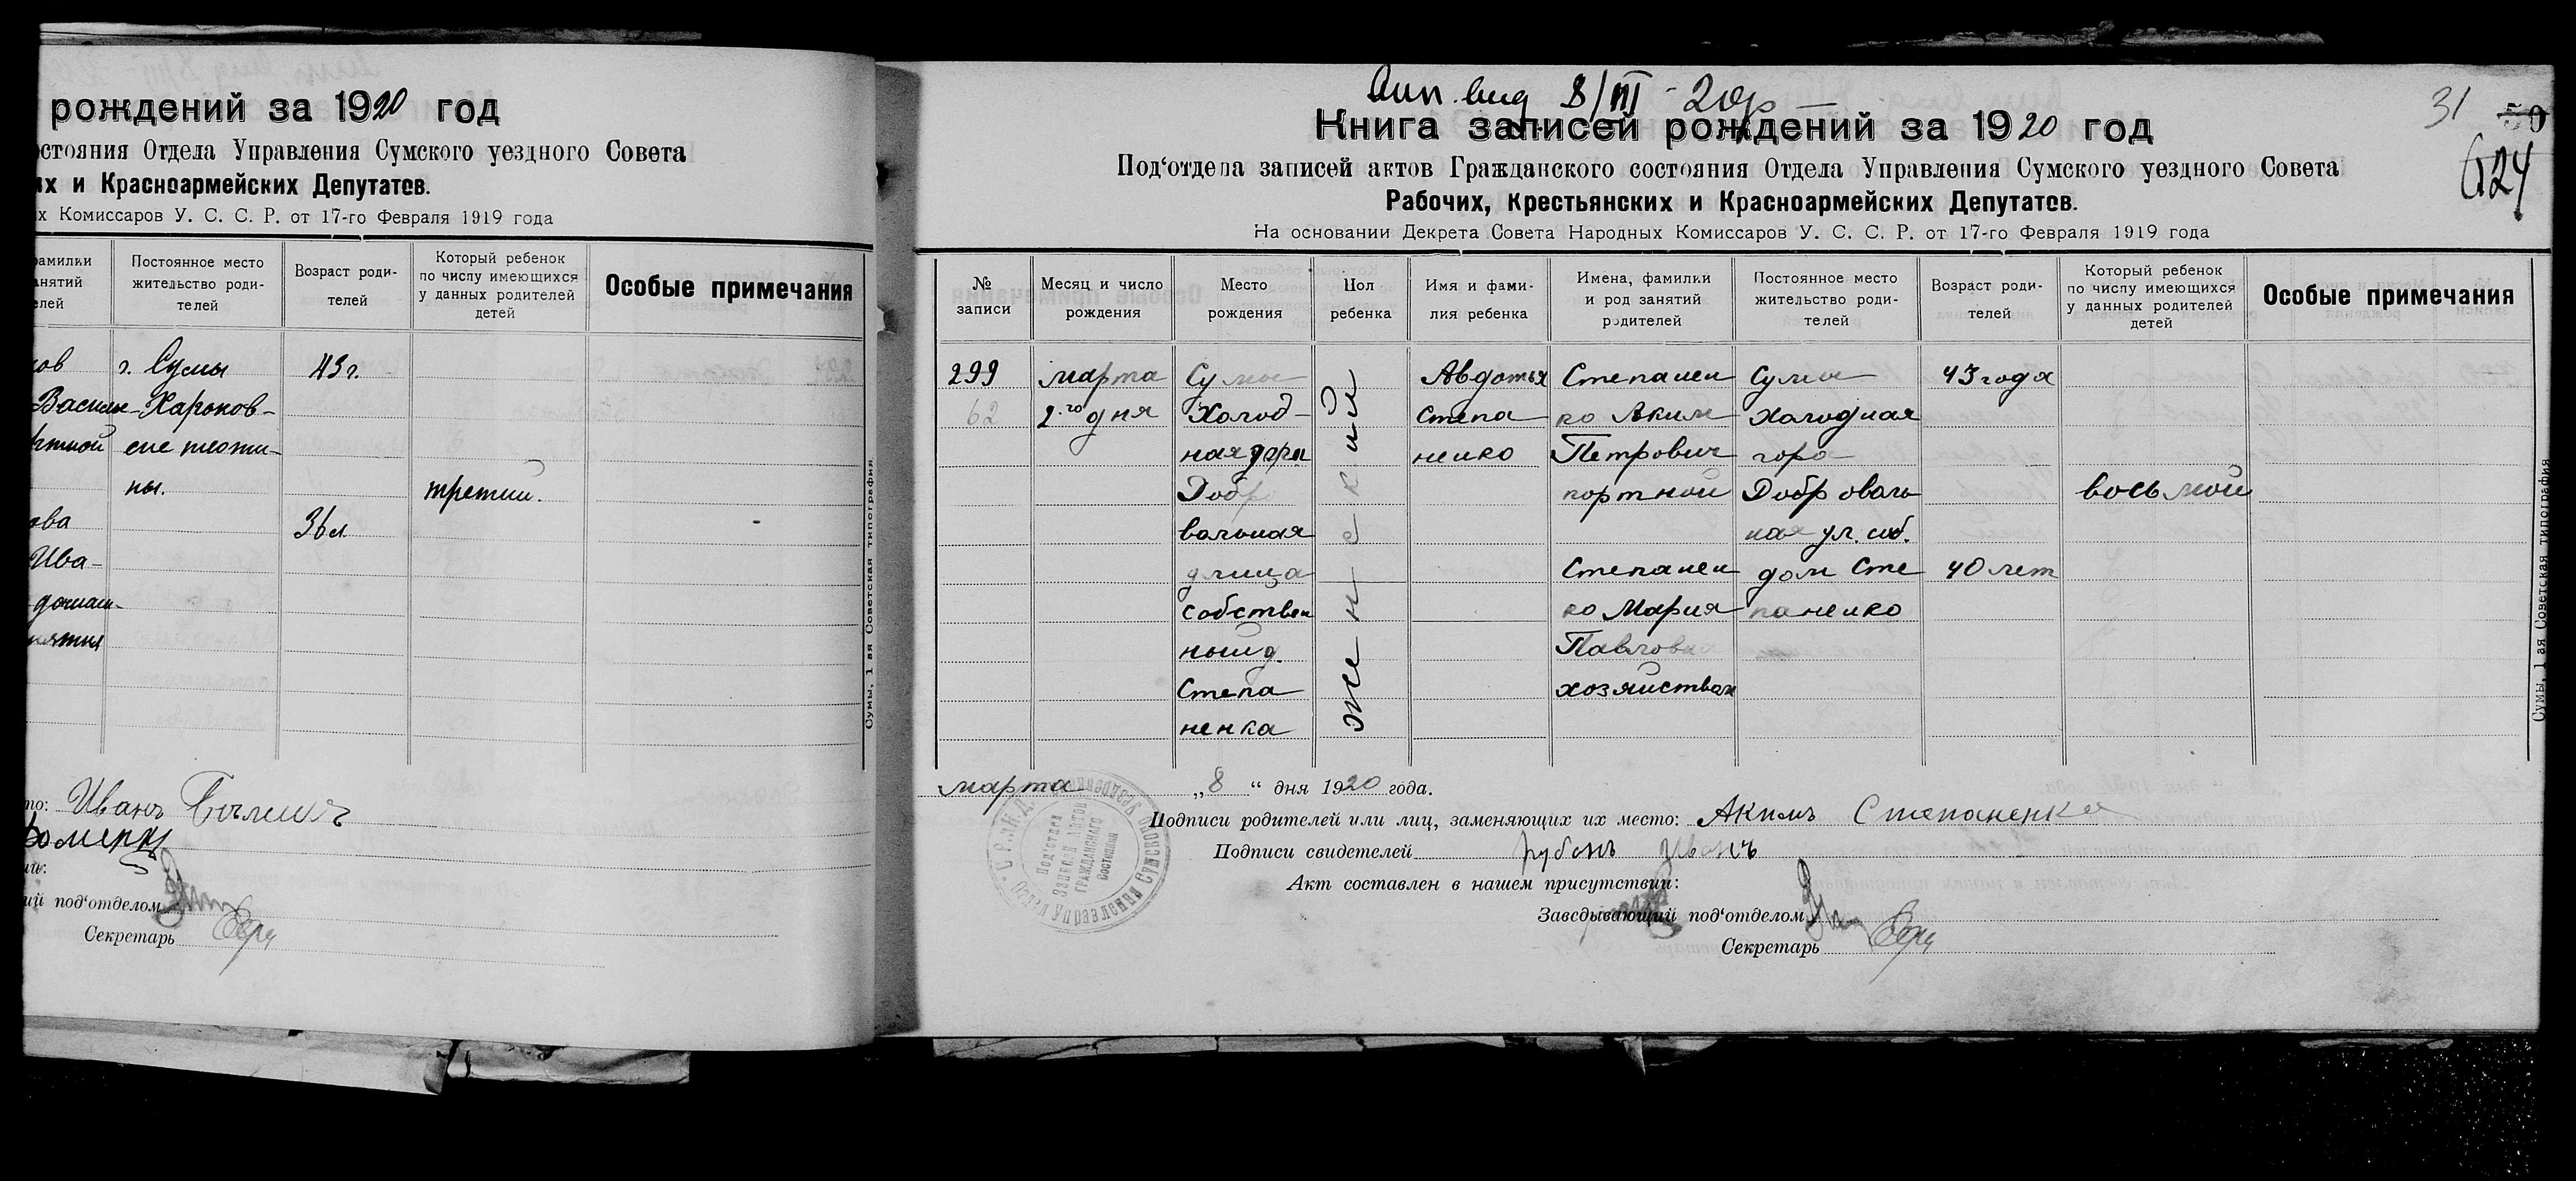 рождений за 1920 год
остояния Отдела Управления Сумского уездного Совета
их и Красноармейских Депутатов.
х Комиссаров У. С. С. Р. от 17-го Февраля 1919 года
фамилии
занятий
елей
Постоянное место
жительство роди-
телей
Возраст роди-
телей
Который ребенок
по числу имеющихся
у данных родителей
детей
Особые примечания
ков
Василь-
ова
Ива-
домаш-
г. Сумы
Харьков-
ны.
43 г.
36 л
третий.
Сумы, 1 ая Советская типография
то: Иванъ
ий под‘отделом
Секретарь
8/III - 20 р
31
50
624
Книга записей рождений за 1920 год
Под‘отдела записей актов Гражданского состояния Отдела Управления Сумского уездного Совета
Рабочих, Крестьянских и Красноармейских Депутатов.
На основании Декрета Совета Народных Комиссаров У. С. С. Р. от 17-го Февраля 1919 года
№
записи
Месяц и число
рождения
Место
рождения
Пол
ребенка
Имя и фами-
лия ребенка
Имена, фамилии
и род занятий
родителей
Постоянное место
жительство роди-
телей
Возраст роди-
телей
Который ребенок
по числу имеющихся
у данных родителей
детей
Особые примечания
299
62
марта
2-го дня
Сумы
Холод-
ная гора
Добро
вольная
улица
собствен
ный д.
Степа
ненка
женский
Авдотья
Степа
ненко
Степанен
ко Аким
Петрович
портной
Степанен
ко Мария
Павловна
хозяйствам
Сумы
Холодная
гора
Доброволь
ная ул. соб.
дом Сте
паненко
43 года
40 лет
восьмой
Сумы, 1 ая Советская типография
марта „8“ дня 1920 года.
Подписи родителей или лиц, заменяющих их место: Акимъ Степаненко
Подписи свидетелей Рубанъ Иванъ
Акт составлен в нашем присутствии:
Заведывающий под‘отделом
Секретарь
Под‘отдел
Записи актов
Гражданского
Состояния